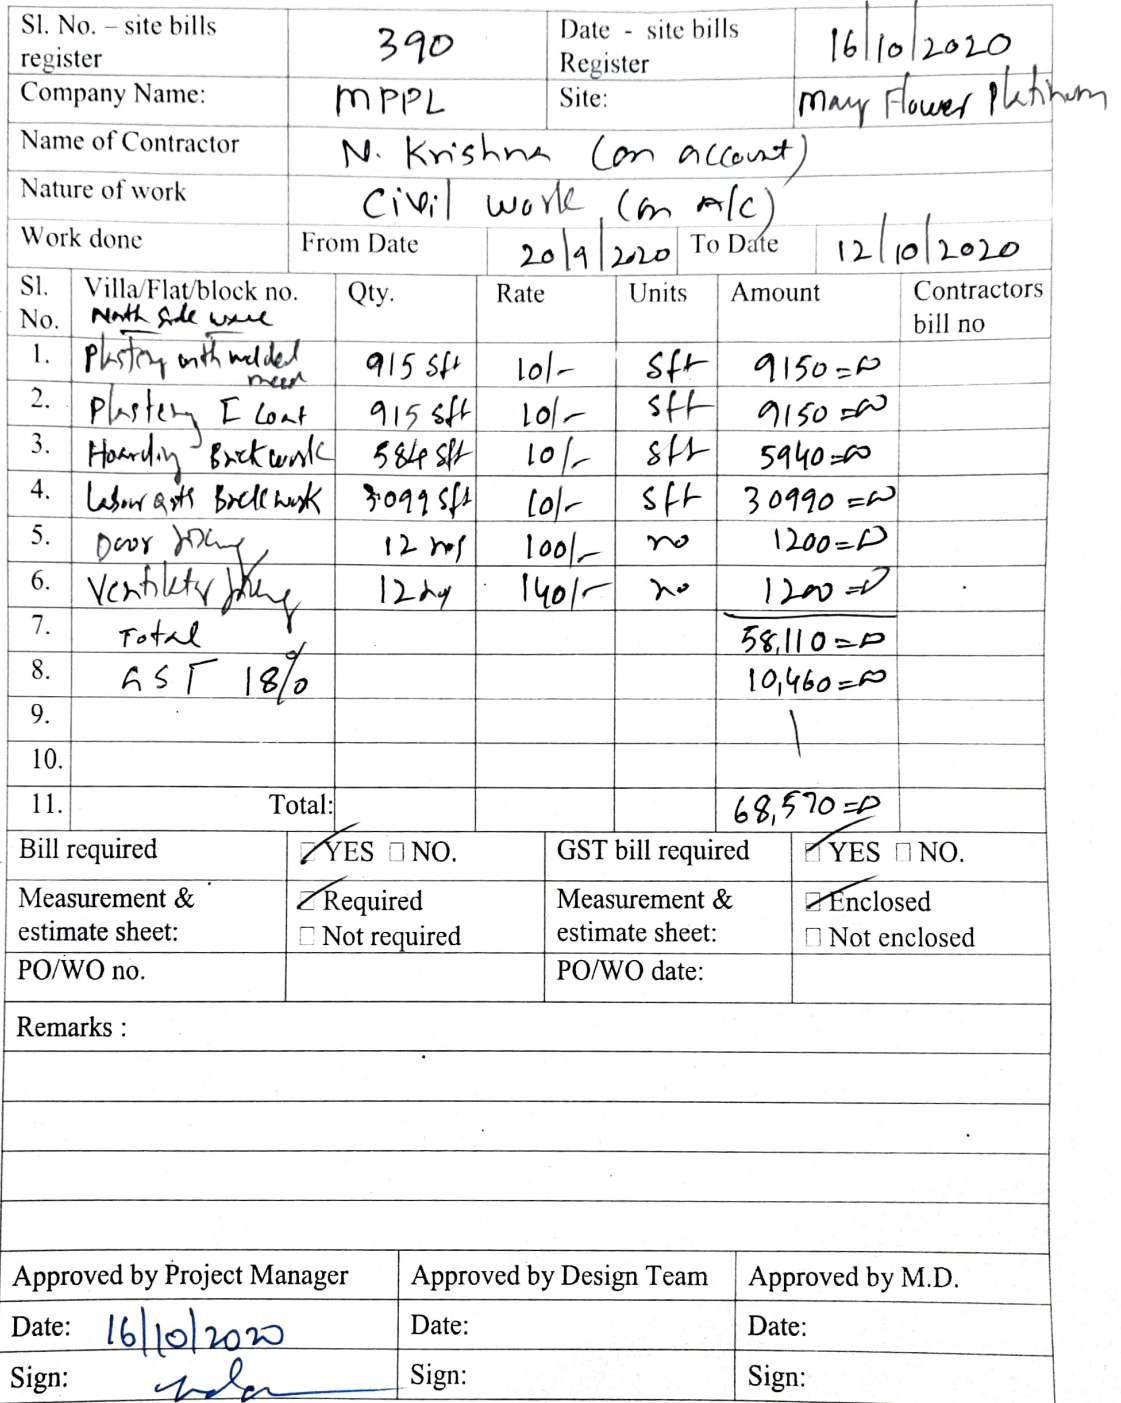 Sl. No. – site bills register 390 Date - site bills Register 16/10/2020
Company Name: MPPL Site: May Flower Platinum
Name of Contractor N. Krishna (on account)
Nature of work Civil work (on A/c)
Work done From Date 20/9/2020 To Date 12/10/2020
Sl. No. Villa/Flat/block no. North side Qty. Rate Units Amount Contractors bill no
1. Plastery with welded mesh 915 sft 10/- sft 9150=00
2. Plastery I coat 915 sft 10/- sft 9150=00
3. Hoarding Brickwork 584 sft 10/- sft 5940=00
4. Labour Brickwork 3099 sft 10/- sft 30990=00
5. Door fixing 12 nos 100/- no 1200=00
6. Ventilator fixing 12 140/- no 1200=00
7. Total 58,110=00
8. GST 18% 10,460=00
9.
10.
11. Total: 68,570=00
Bill required YES NO. GST bill required YES NO.
Measurement & estimate sheet: Required Not required Measurement & estimate sheet: Enclosed Not enclosed
PO/WO no. PO/WO date:
Remarks :
Approved by Project Manager Approved by Design Team Approved by M.D.
Date: 16/10/2020 Date: Date:
Sign: Sign: Sign: